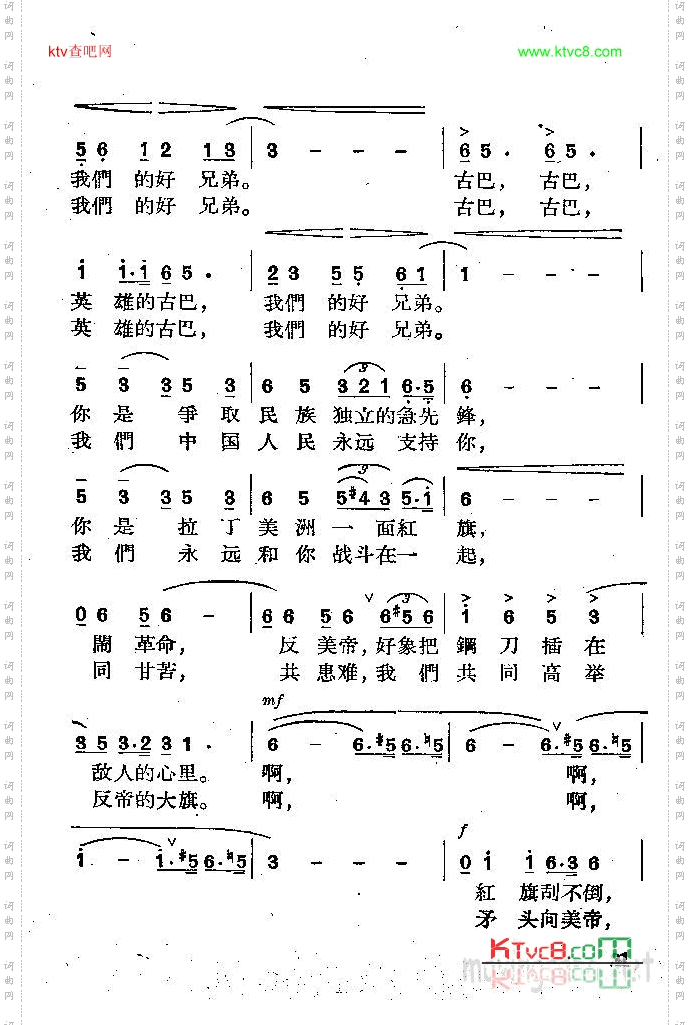 ktv查吧网 www.ktvc8.com
5 6 1 2 1 3 | 3 - - - | 6 5 . 6 5 . |
我們 的好 兄弟。 古巴, 古巴,
我們 的好 兄弟。 古巴, 古巴,
1 1·1 6 5 . | 2 3 5 5 6 1 | 1 - - - |
英 雄的古巴, 我們 的好 兄弟。
英 雄的古巴, 我們 的好 兄弟。
5 3 3 5 3 | 6 5 3 2 1 6·5 | 6 - - - |
你 是 爭 取 民 族 独立的急先 鋒,
我 們 中 国 人 民 永远 支持 你,
5 3 3 5 3 | 6 5 5 #4 3 5·1 | 6 - - - |
你 是 拉 丁 美 洲 一 面紅 旗,
我 們 永 远 和 你 战斗在一 起,
0 6 5 6 - | 6 6 5 6 6 #5 6 | 1 6 5 3 |
鬧 革命, 反 美帝,好象把 鋼 刀 插 在
同 甘苦, 共 患难,我 們 共 同 高 举
mf
3 5 3·2 3 1 . | 6 - 6·#5 6·♮5 | 6 - 6·#5 6·♮5 |
敌人的心里。 啊, 啊,
反帝的大旗。 啊, 啊,
f
1 - 1·#5 6·♮5 | 3 - - - | 0 1 1 6·3 6 |
紅 旗刮不倒,
矛 头向美帝,
KTvc8.com
词曲网